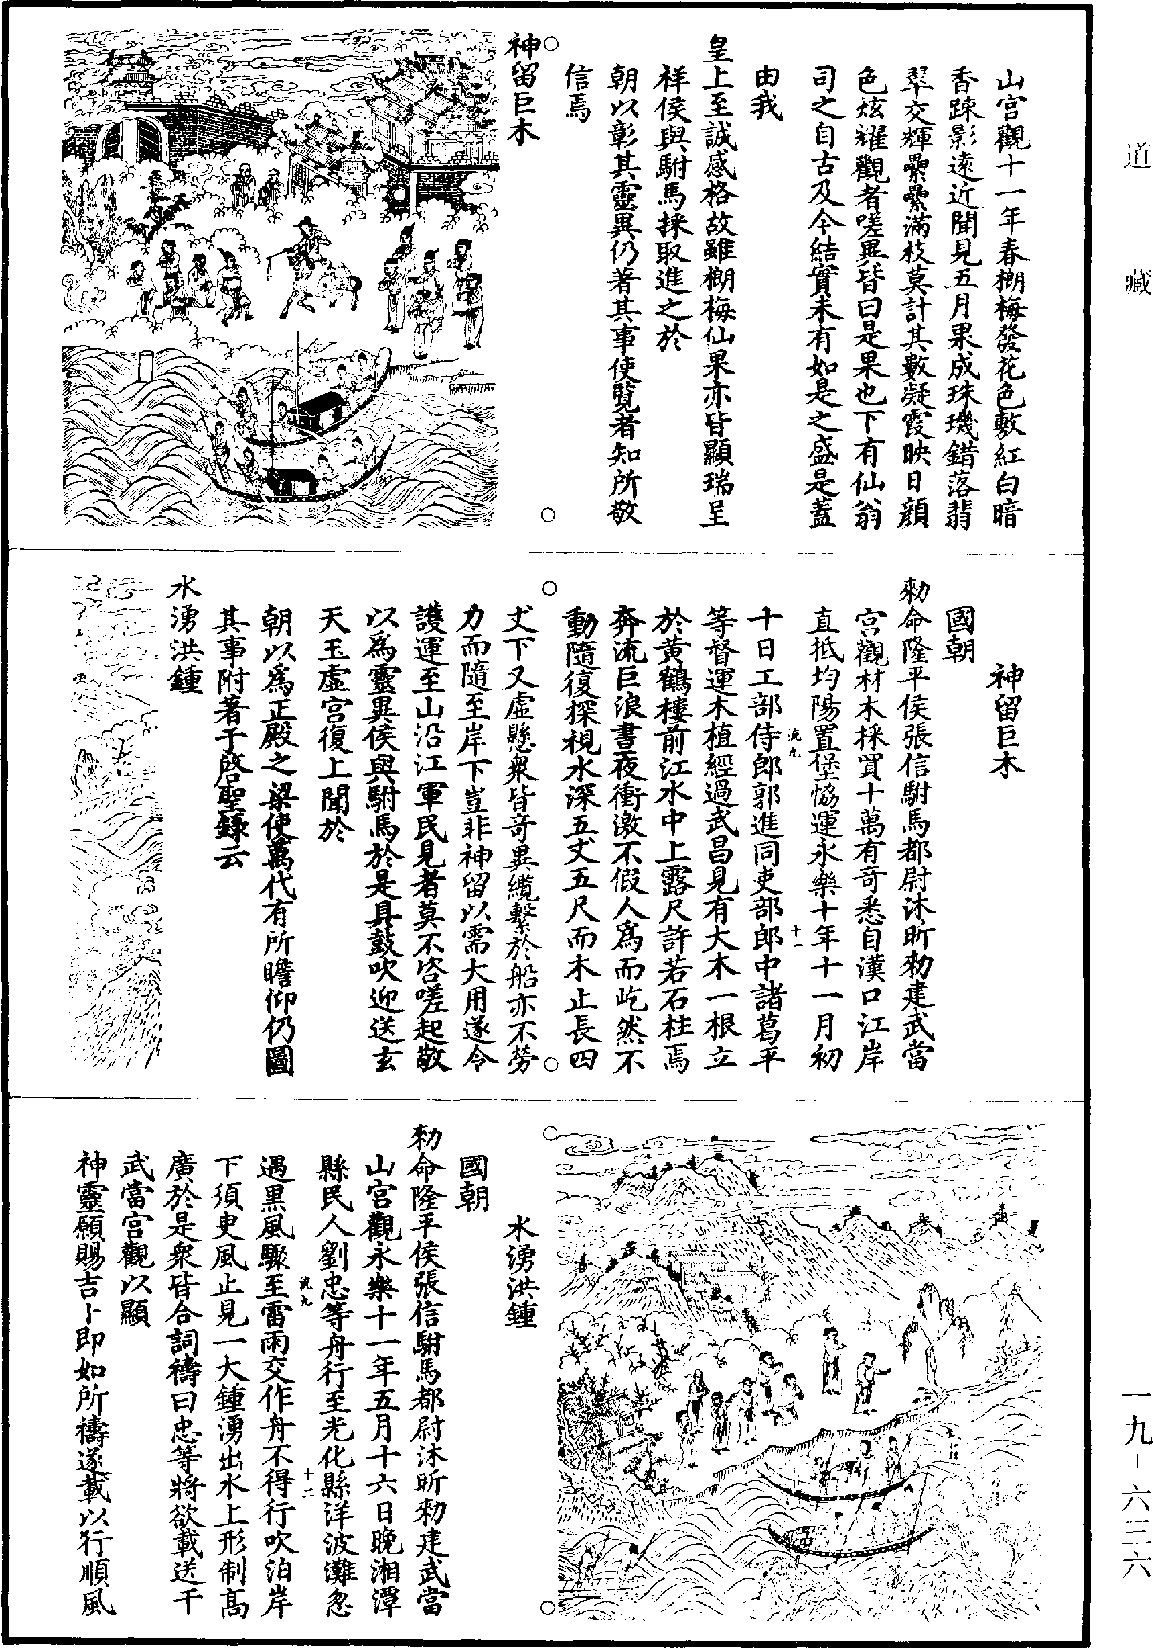 道藏
山宮觀十一年春榔梅發花色敷紅白暗
香踈影遠近聞見五月果成珠璣錯落翡
翠交輝纍纍滿枝莫計其數凝霞映日顏
色炫耀觀者嗟異皆曰是果也下有仙翁
司之自古及今結實未有如是之盛是蓋
由我
皇上至誠感格故雖榔梅仙果亦皆顯瑞呈
祥侯與駙馬採取進之於
朝以彰其靈異仍著其事使覽者知所敬
信焉
神留巨木
神留巨木
國朝
勑命隆平侯張信駙馬都尉沐昕勑建武當
宮觀材木採買十萬有奇悉自漢口江岸
直抵均陽置堡恊運永樂十年十一月初
流九
十一
十日工部侍郎郭進同吏部郎中諸葛平
等督運木植經過武昌見有大木一根立
於黃鶴樓前江水中上露尺許若石柱焉
奔流巨浪晝夜衝激不假人為而屹然不
動隨復探視水深五丈五尺而木止長四
丈下又虛懸衆皆奇異纜繫於船亦不勞
力而隨至岸下豈非神留以需大用遂令
護運至山沿江軍民見者莫不咨嗟起敬
以為靈異侯與駙馬於是具鼓吹迎送玄
天玉虛宮復上聞於
朝以為正殿之梁使萬代有所瞻仰仍圖
其事附著于啓聖錄云
水湧洪鍾
水湧洪鍾
國朝
勑命隆平侯張信駙馬都尉沐昕勑建武當
山宮觀永樂十一年五月十六日晚湘潭
縣民人劉忠等舟行至光化縣洋波灘忽
流九
十二
遇黑風驟至雷雨交作舟不得行吹泊岸
下須臾風止見一大鍾湧出水上形制高
廣於是衆皆合詞禱曰忠等將欲載送于
武當宮觀以顯
神靈願賜吉卜即如所禱遂載以行順風
一九-六三六